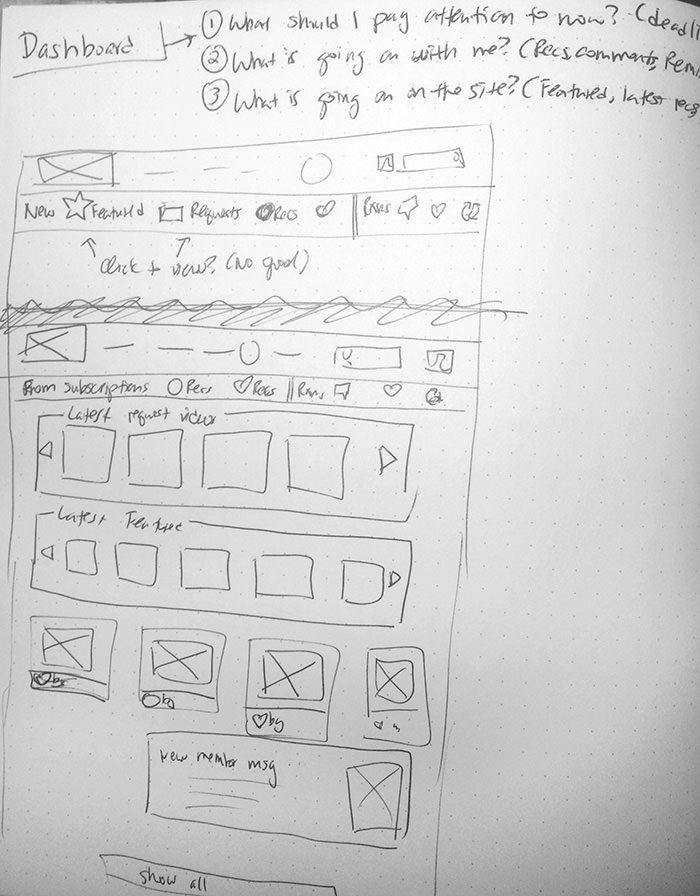 Dashboard
① What should I pay attention to now? (deadli
② What is going on with me? (Recs, comments, Remi
③ What is going on on the site? (Featured, latest recs
New Featured Requests Recs
click + view? (no good)
From subscriptions Recs Recs
Latest request
Latest Featured
by
by
by
New member msg
show all